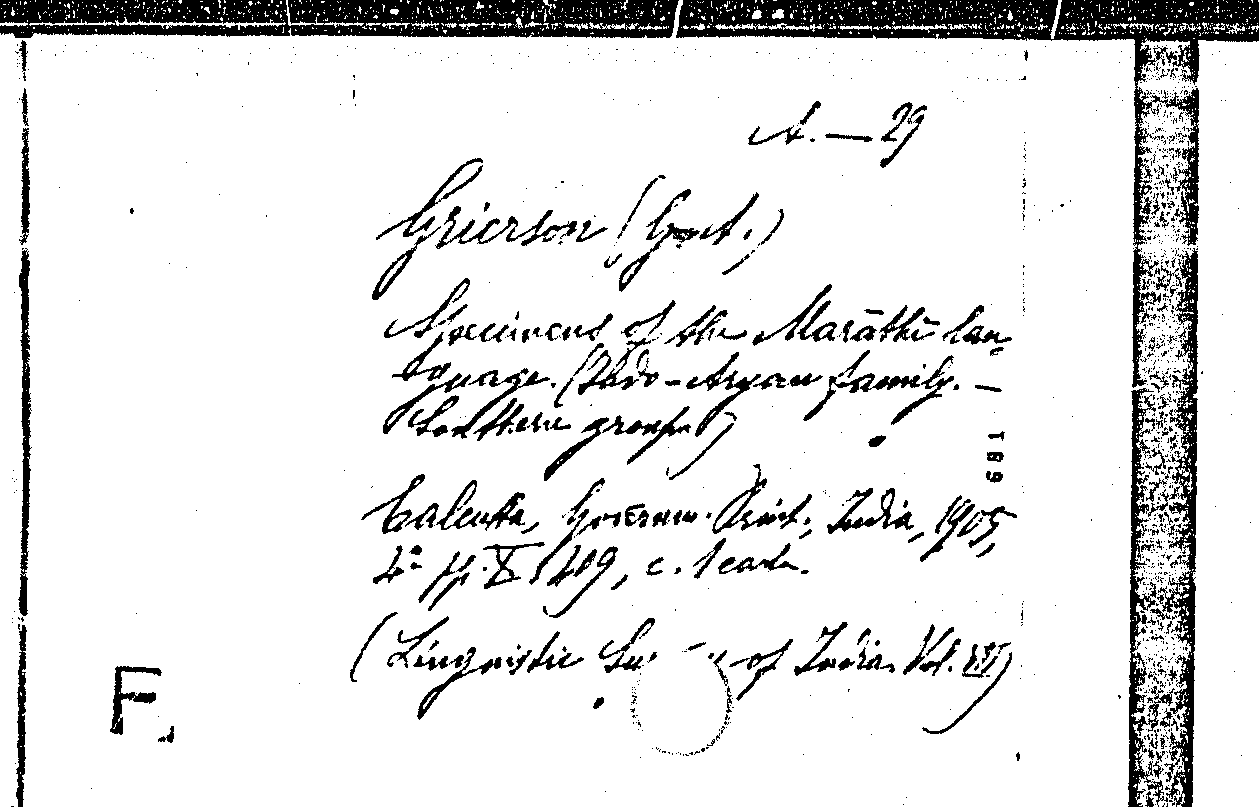 A. — 29
Grierson (
Specimens of the Marāthī lan-
guage. (Indo-Aryan family. —
Southern group)
Calcutta, Governm. Print., India, 1905,
4° pp. X, 409, c. 1 carta.
(Linguistic Su y of India. Vol. VII)
681
F.